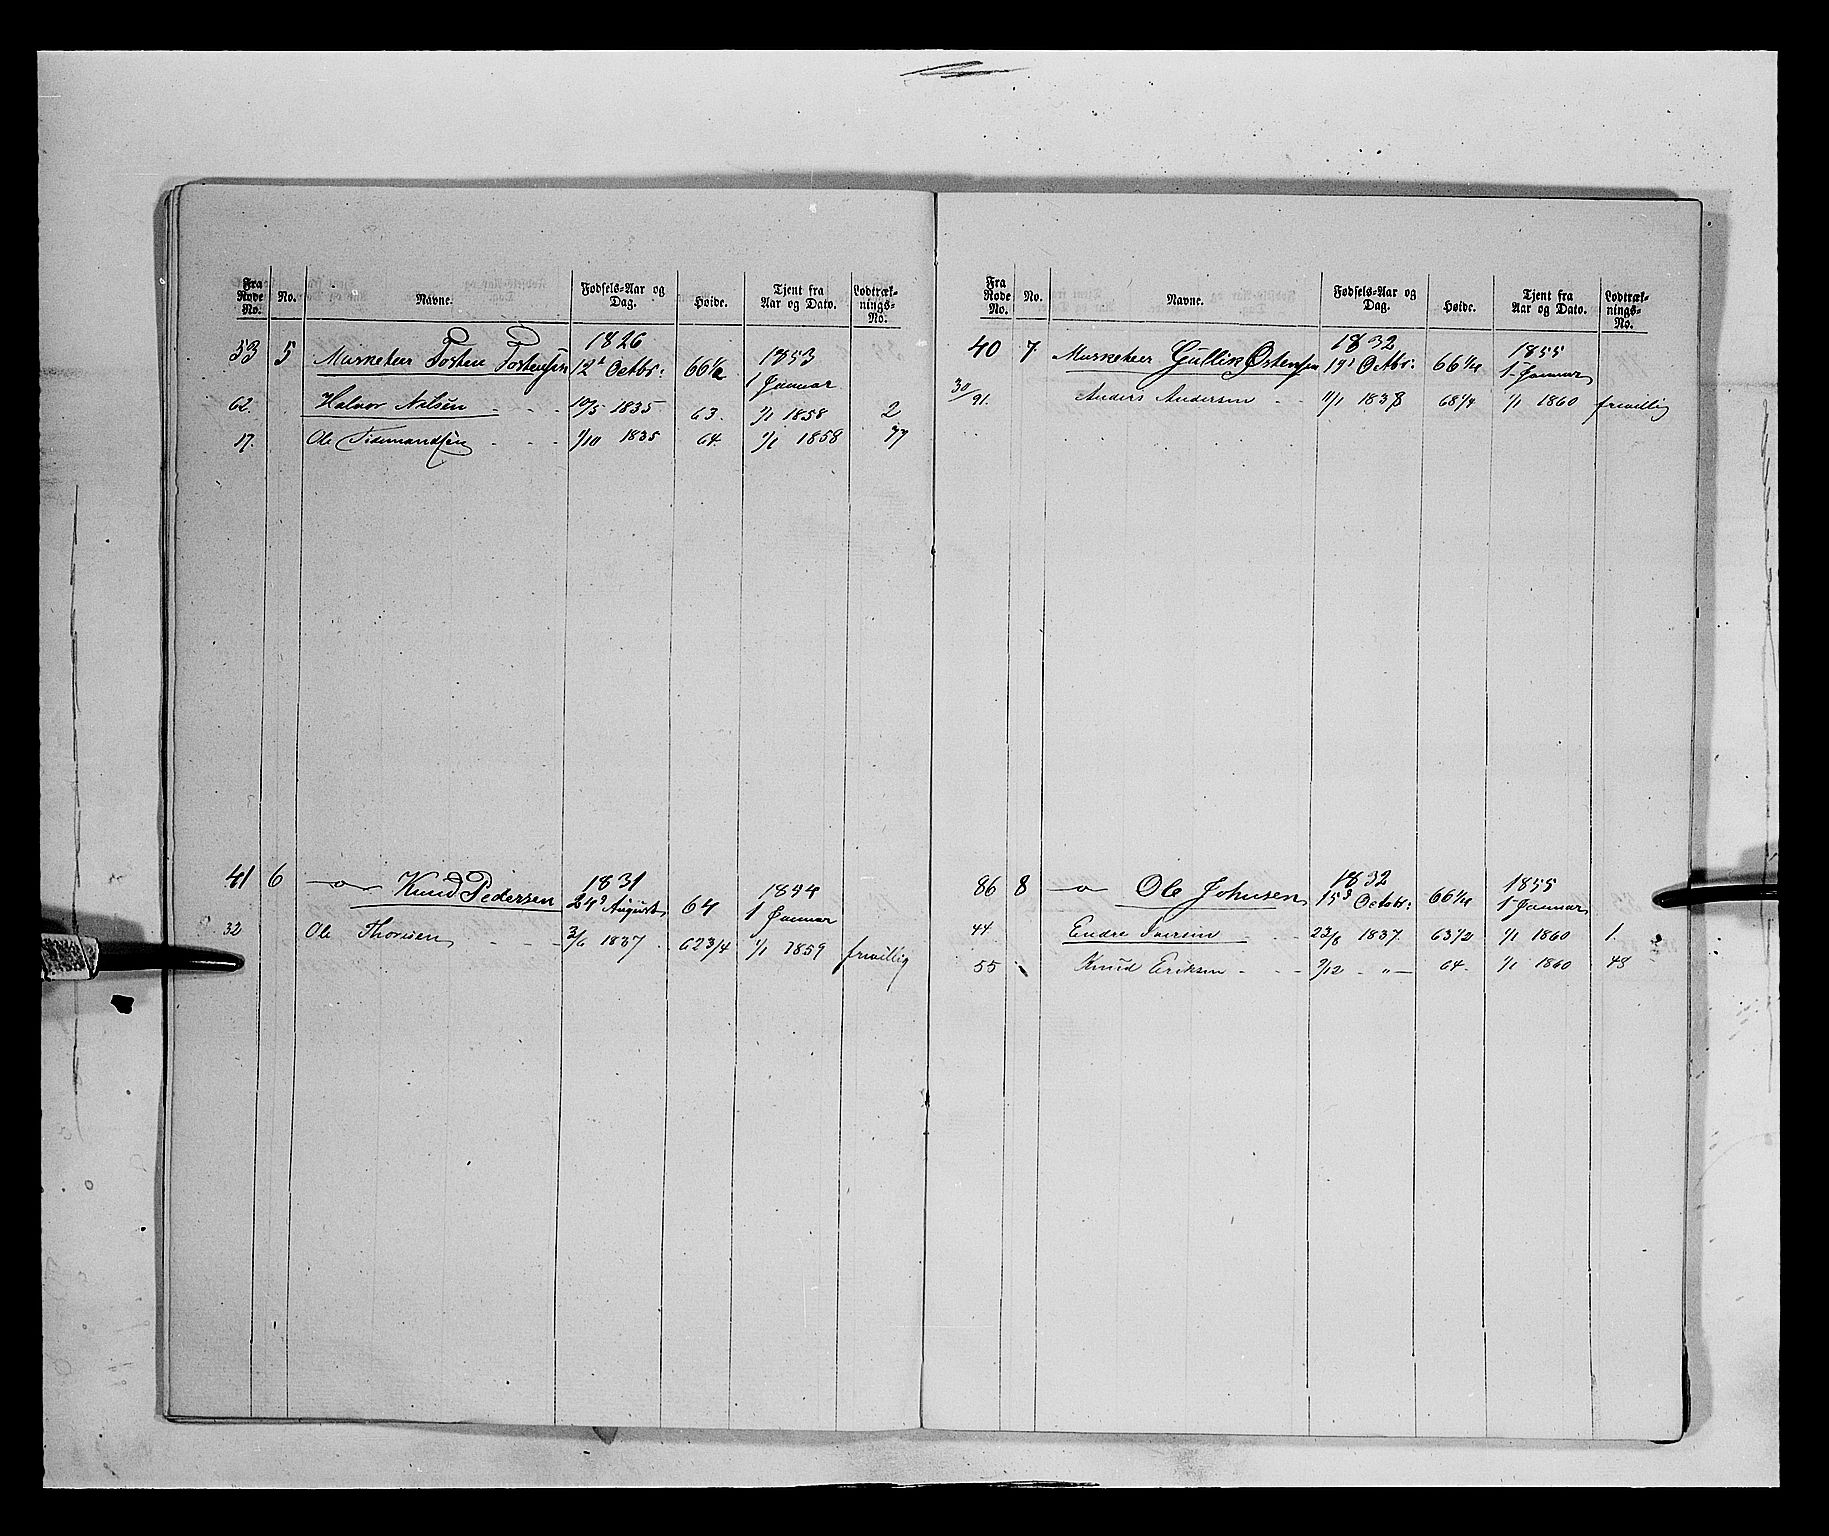 Fra Rode No. | No. | Navne. | Fødsels-Aar og Dag. | Høide. | Tjent fra Aar og Dato. | Lodtræk-nings-No.
53 | 5 | Musketeer Tosten Tostensen | 1826 12te Octbr: | 66 1/2 | 1853 1 Januar
62. | Halvor Nilsen | 10/5 1835 | 63. | 1/1 1858 | 2
17. | Ole Tidemandsen | 1/10 1835 | 64. | 1/1 1858 | 77
41 | 6 | —"— Knud Pedersen | 1831 24de August | 64 | 1854 1 Januar
32 | Ole Thorsen | 3/6 1837 | 62 3/4 | 1/1 1859 | frivillig
Fra Rode No. | No. | Navne. | Fødsels-Aar og Dag. | Høide. | Tjent fra Aar og Dato. | Lodtræk-nings-No.
40 | 7 | Musketeer Gullik Østensen | 1832 19de Octbr: | 66 1/4 | 1855 1 Januar
30/91. | Anders Andersen | 11/1 1838 | 68 1/4 | 1/1 1860 | frivillig
86 | 8 | —"— Ole Johnsen | 1832 15de Octobr: | 66 1/4 | 1855 1 Januar
44 | Endre Iversen | 23/8 1837. | 63 1/2 | 1/1 1860 | 1.
55 | Knud Eriksen | 7/12 —"— | 64. | 1/1 1860 | 48